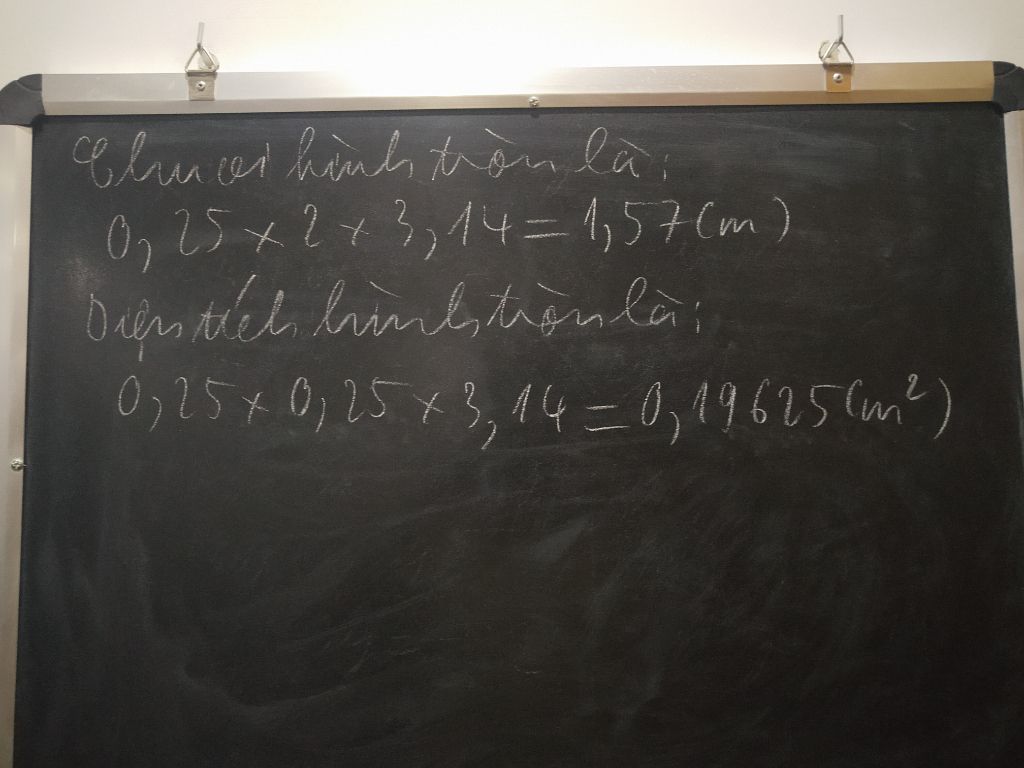 Chu vi hình tròn là:
0,25 x 2 x 3,14 = 1,57 (m)
Diện tích hình tròn là:
0,25 x 0,25 x 3,14 = 0,19625 (m²)